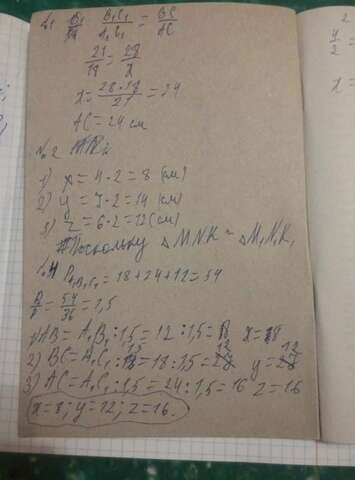 B₁C₁/A₁C₁ = BC/AC
x = 28·18/21 = 24
AC = 24 см
№2
1) x = 4·2 = 8 (см)
2) y = 7·2 = 14 (см)
3) z = 6·2 = 12 (см)
Поскольку △MNK ~ △M₁N₁K₁
P A₁B₁C₁ = 18+24+12 = 54
54/36 = 1,5
1) AB = A₁B₁ : 1,5 = 12 : 1,5 = 8 x = 8
2) BC = 18 : 1,5 = 12 y = 12
3) AC = A₁C₁ : 1,5 = 24 : 1,5 = 16 z = 16
x = 8; y = 12; z = 16.